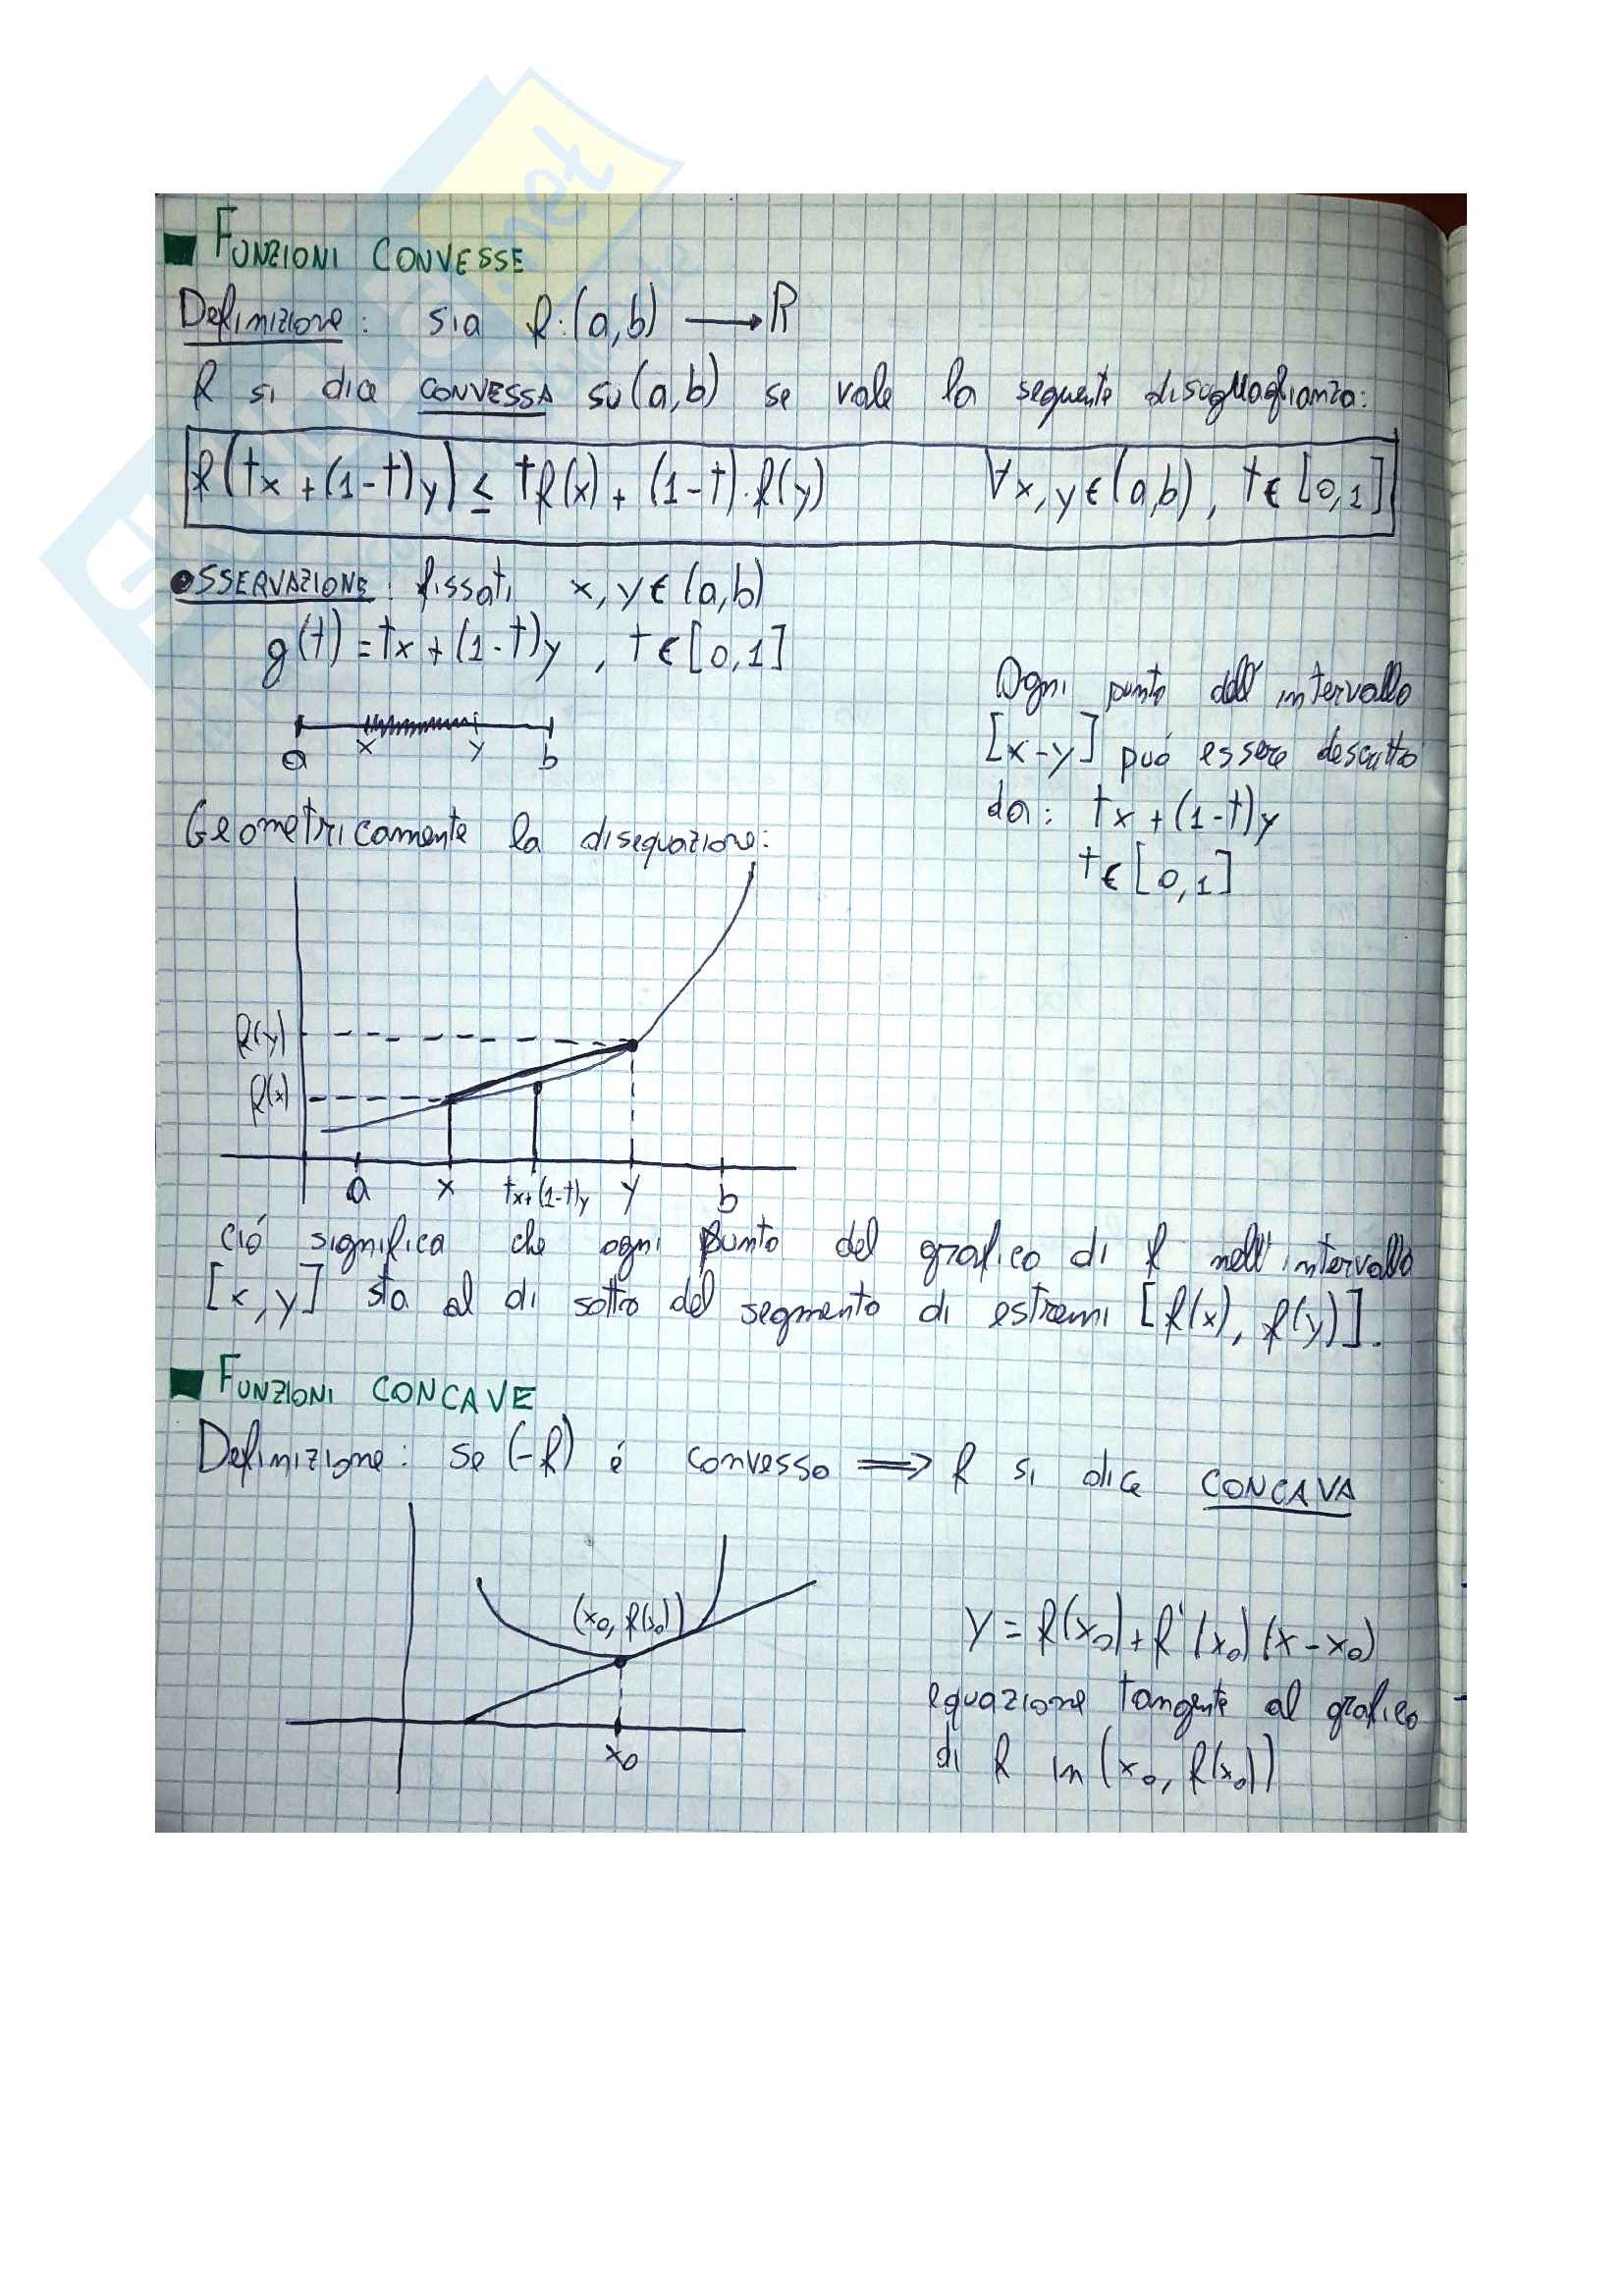 FUNZIONI CONVESSE
Definizione: sia f:(a,b) ⟶ R
f si dice CONVESSA su (a,b) se vale la seguente disuguaglianza:
f(tx+(1-t)y) ≤ tf(x)+(1-t)·f(y) ∀x,y∈(a,b), t∈[0,1]
OSSERVAZIONE: fissati x,y∈(a,b)
g(t)=tx+(1-t)y , t∈[0,1]
a x y b
Ogni punto dell'intervallo
[x-y] può essere descritto
da: tx+(1-t)y
t∈[0,1]
Geometricamente la disequazione:
f(y)
f(x)
a x tx+(1-t)y y b
ció significa che ogni punto del grafico di f nell'intervallo
[x,y] sta al di sotto del segmento di estremi [f(x), f(y)].
FUNZIONI CONCAVE
Definizione: se (-f) é convesso ⟹ f si dice CONCAVA
(x₀, f(x₀))
x₀
y = f(x₀)+f'(x₀)(x-x₀)
equazione tangente al grafico
di f in (x₀, f(x₀))
.net